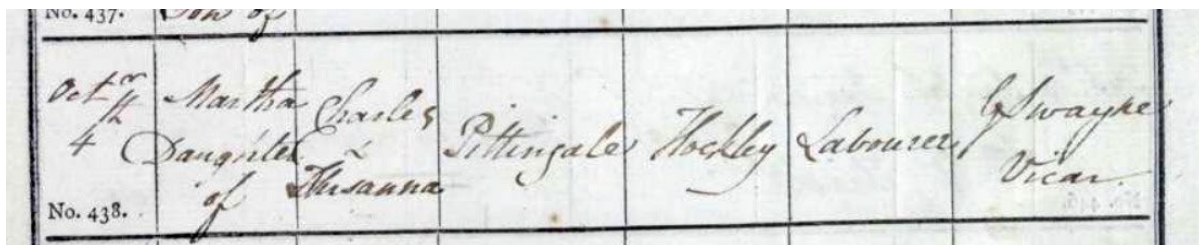 No. 437. Son of
Octr 4th
Martha Daughter of
Charles & Susanna
Pittingale
Hockley
Labourer
G Swayne Vicar
No. 438.